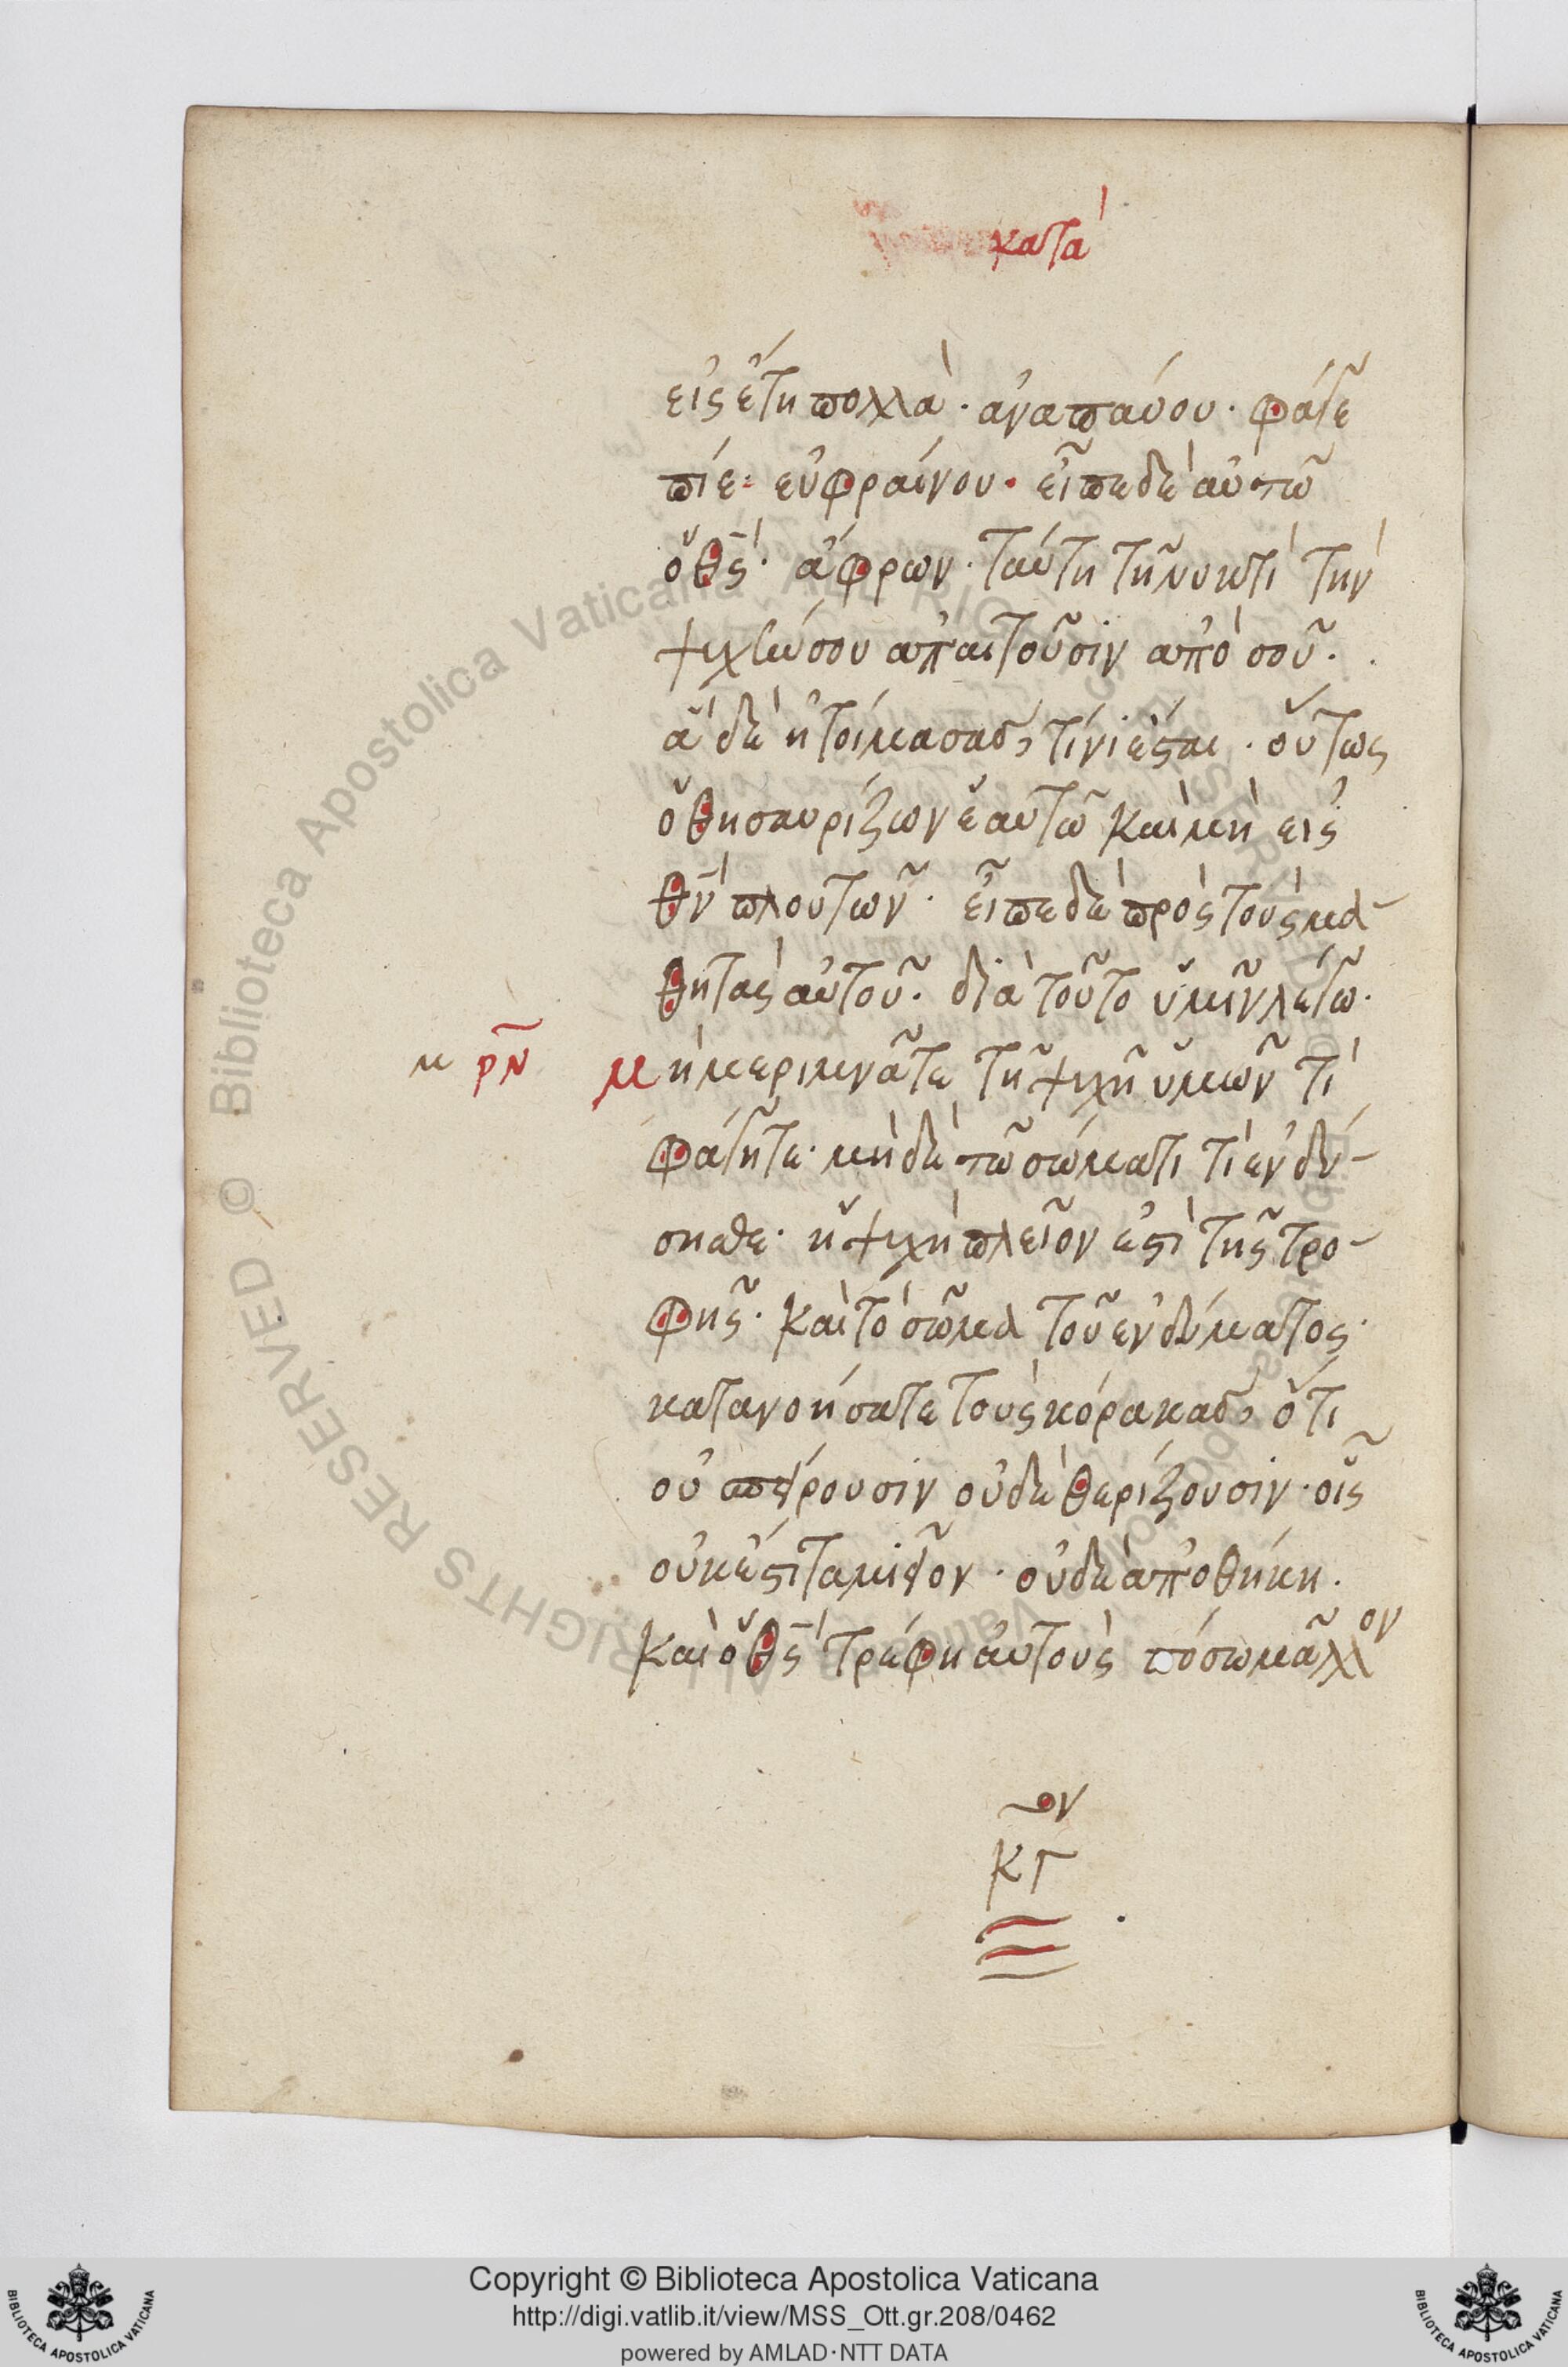 κατὰ
εἰς ἔτη πολλὰ· ἀναπαύου· φάγε
πίε· εὐφραίνου· εἶπε δὲ αὐτῶ
ὁ θς· ἄφρων· ταύτη τῆ νυκτὶ τὴν
ψυχήν σου ἀπαιτοῦσιν ἀπὸ σοῦ·
ἃ δὲ ἡτοίμασας, τίνι ἔσται· οὕτως
ὁ θησαυρίζων ἑαυτῶ καὶ μὴ εἰς
θν πλουτῶν· εἶπε δὲ πρὸς τοὺς μα-
θητὰς αὐτοῦ· διὰ τοῦτο ὑμῖν λέγω·
μ ρν μὴ μεριμνᾶτε τῆ ψυχῆ ὑμῶν τί
φάγητε· μὴ δὲ τῶ σώματι τί ἐνδύ-
σησθε· ἡ ψυχὴ πλεῖον ἐστὶ τῆς τρο-
φῆς· καὶ τὸ σῶμα τοῦ ἐνδύματος·
κατανοήσατε τοὺς κόρακας, ὅτι
οὐ σπείρουσιν οὐδὲ θερίζουσιν· οἷς
οὐκ ἔστι ταμιεῖον· οὐδὲ ἀποθήκη·
καὶ ὁ θς τρέφη αὐτοὺς πόσω μᾶλλον
ον
κγ
Copyright © Biblioteca Apostolica Vaticana
http://digi.vatlib.it/view/MSS_Ott.gr.208/0462
powered by AMLAD·NTT DATA